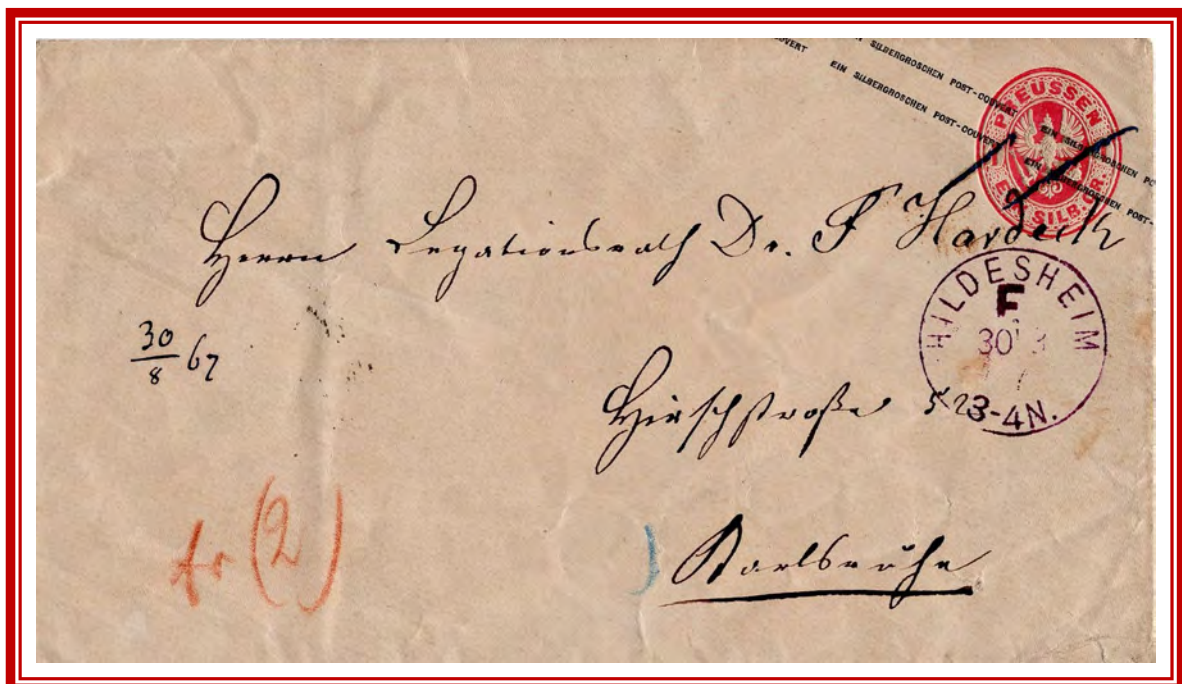 EIN SILBERGROSCHEN POST-COUVERT
EIN SILBERGROSCHEN POST-COUVERT EIN SILBERGROSCHEN
EIN SILBERGROSCHEN POST-
PREUSSEN
SILB. GR.
Herrn Legationsrath Dr. F Hardeck
HILDESHEIM
F
30
3-4N.
30/8 67
Hirschstraße 52
fr (2)
Karlsruhe